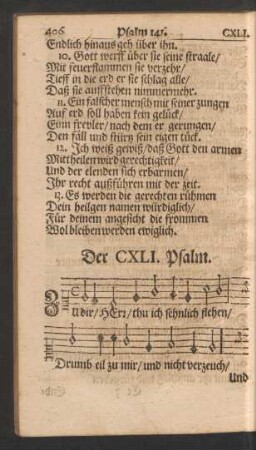 406 Psalm 141. CXLI.
Endlich hinaus geh über ihn.
10. Gott werff über sie seine straale/
Mit feuerflammen sie verzehr/
Tieff in die erd er sie schlag alle/
Daß sie auffstehen nimmermehr.
11. Ein falscher mensch mit seiner zungen
Auf erd soll haben kein gelück/
Einn frevler/ nach dem er gerungen/
Den fäll und stürtz sein eigen tück.
12. Ich weiß gewiß/ daß Gott den armen
Mittheilen wird gerechtigkeit/
Und der elenden sich erbarmen/
Ihr recht außführen mit der zeit.
13. Es werden die gerechten rühmen
Dein heilgen namen würdiglich/
Für deinem angesicht die frommen
Wol bleiben werden ewiglich.
Der CXLI. Psalm.
Zu dir/ HErr/ thu ich sehnlich flehen/
Drumb eil zu mir/ und nicht verzeuch/
Und